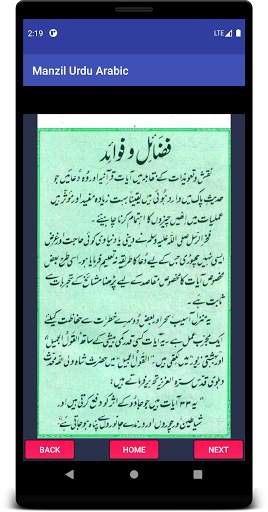 2:19
LTE
Manzil Urdu Arabic
فضائل و فوائد
نقش و تعویذات کے مقابلہ میں آیات قرآنیہ اور وہ دعائیں جو
حدیث پاک میں وارد ہوئی ہیں یقیناً بہت زیادہ مفید اور مؤثر ہیں
عملیات میں انھیں چیزوں کا اہتمام کرنا چاہیئے۔
فخر الرسل صلی اللہ علیہ وسلم نے دینی یا دنیاوی کوئی حاجت و غرض
ایسی نہیں چھوڑی جس کے لیے دعا کا طریقہ نہ تعلیم فرمایا ہو، اسی طرح بعض
مخصوص آیات کا مخصوص مقاصد کے لیے پڑھنا مشائخ کے تجربات سے
ثابت ہے۔
یہ منزل آسیب سحر اور بعض دوسرے خطرات سے حفاظت کیلئے
ایک مجرب عمل ہے۔ یہ آیات کسی قدر کمی بیشی کے ساتھ القول الجمیل
اور بہشتی زیور میں لکھی ہیں۔ القول الجمیل میں حضرت شاہ ولی اللہ محدث
دہلوی قدس سرہ العزیز تحریر فرماتے ہیں:
یہ ۳۳ آیات ہیں جو جادو کے اثر کو دفع کرتی ہیں اور
شیاطین اور چوروں اور درندے جانوروں سے پناہ ہو جاتی ہے
BACK
HOME
NEXT